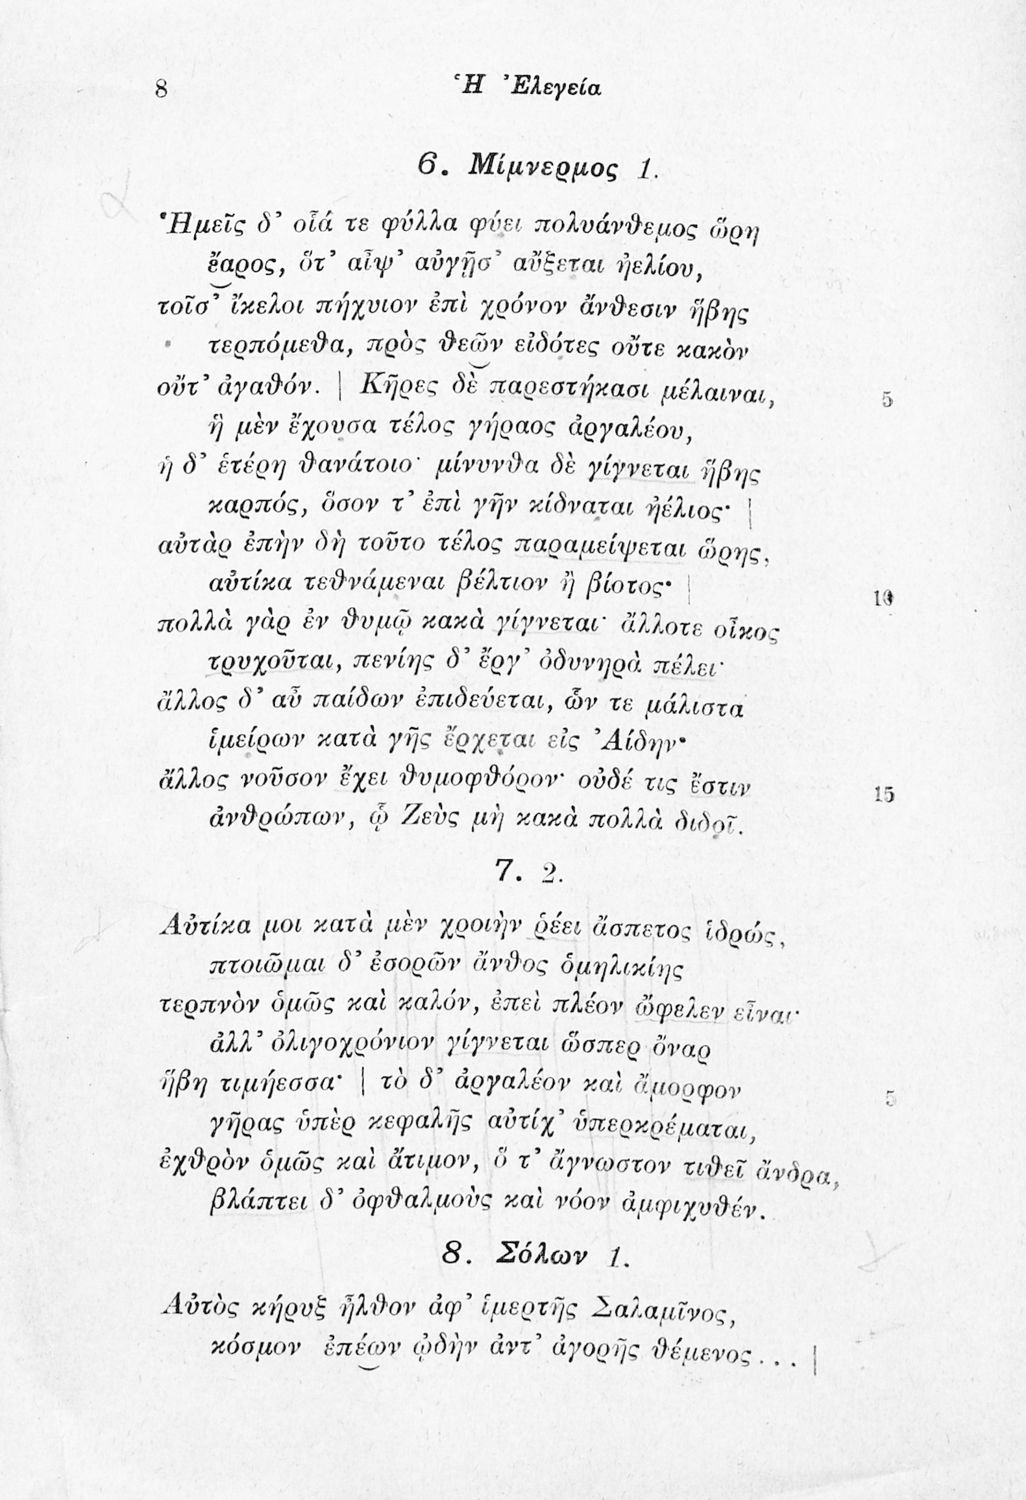 8
Ἡ Ἐλεγεία
6. Μίμνερμος 1.
Ἡμεῖς δ’ οἷά τε φύλλα φύει πολυάνθεμος ὥρη
ἔαρος, ὅτ’ αἶψ’ αὐγῇσ’ αὔξεται ἠελίου,
τοῖσ’ ἴκελοι πήχυιον ἐπὶ χρόνον ἄνθεσιν ἥβης
τερπόμεθα, πρὸς θεῶν εἰδότες οὔτε κακὸν
οὔτ’ ἀγαθόν. | Κῆρες δὲ παρεστήκασι μέλαιναι,
5
ἡ μὲν ἔχουσα τέλος γήραος ἀργαλέου,
ἡ δ’ ἑτέρη θανάτοιο· μίνυνθα δὲ γίγνεται ἥβης
καρπός, ὅσον τ’ ἐπὶ γῆν κίδναται ἠέλιος· |
αὐτὰρ ἐπὴν δὴ τοῦτο τέλος παραμείψεται ὥρης,
αὐτίκα τεθνάμεναι βέλτιον ἢ βίοτος· |
10
πολλὰ γὰρ ἐν θυμῷ κακὰ γίγνεται· ἄλλοτε οἶκος
τρυχοῦται, πενίης δ’ ἔργ’ ὀδυνηρὰ πέλει·
ἄλλος δ’ αὖ παίδων ἐπιδεύεται, ὧν τε μάλιστα
ἱμείρων κατὰ γῆς ἔρχεται εἰς Ἀίδην·
ἄλλος νοῦσον ἔχει θυμοφθόρον· οὐδέ τις ἔστιν
15
ἀνθρώπων, ᾧ Ζεὺς μὴ κακὰ πολλὰ διδοῖ.
7. 2.
Αὐτίκα μοι κατὰ μὲν χροιὴν ῥέει ἄσπετος ἱδρώς,
πτοιῶμαι δ’ ἐσορῶν ἄνθος ὁμηλικίης
τερπνὸν ὁμῶς καὶ καλόν, ἐπεὶ πλέον ὤφελεν εἶναι·
ἀλλ’ ὀλιγοχρόνιον γίγνεται ὥσπερ ὄναρ
ἥβη τιμήεσσα· | τὸ δ’ ἀργαλέον καὶ ἄμορφον
5
γῆρας ὑπὲρ κεφαλῆς αὐτίχ’ ὑπερκρέμαται,
ἐχθρὸν ὁμῶς καὶ ἄτιμον, ὅ τ’ ἄγνωστον τιθεῖ ἄνδρα,
βλάπτει δ’ ὀφθαλμοὺς καὶ νόον ἀμφιχυθέν.
8. Σόλων 1.
Αὐτὸς κήρυξ ἦλθον ἀφ’ ἱμερτῆς Σαλαμῖνος,
κόσμον ἐπέων ᾠδὴν ἀντ’ ἀγορῆς θέμενος... |